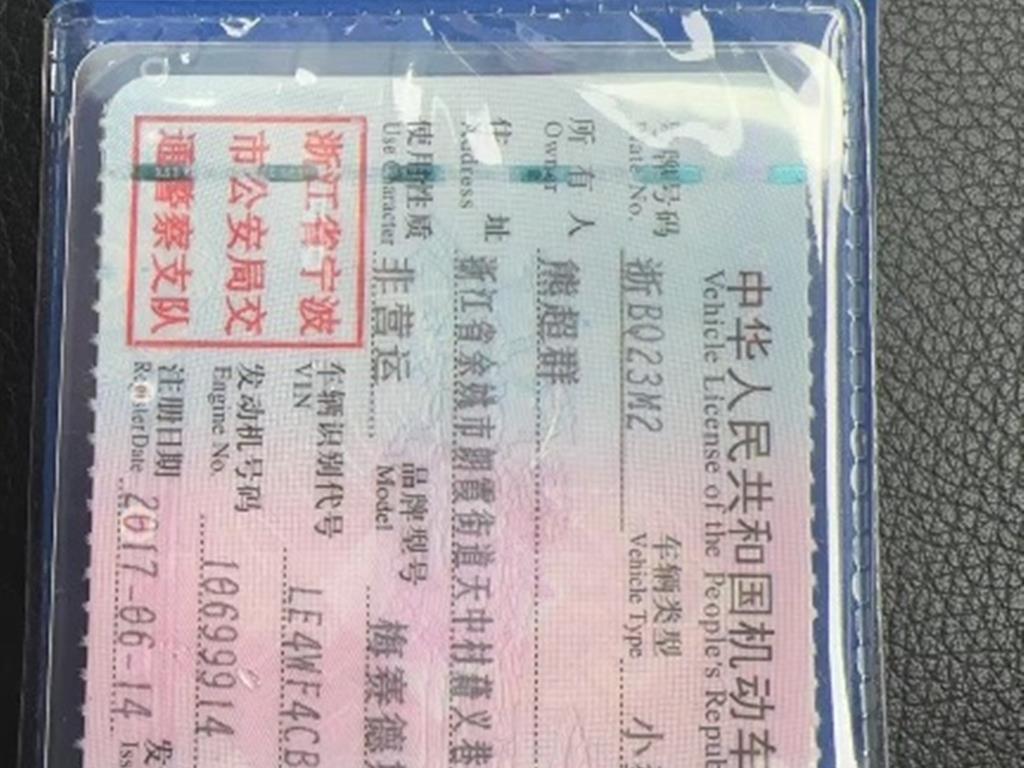 中华人民共和国机动车
Vehicle License of the People's Repub
号牌号码 浙BQ23M2 车辆类型 小
Plate No. Vehicle Type
所有人 熊超群
Owner
住址 浙江省余姚市朗霞街道天中村
Address
使用性质 非营运 品牌型号 梅赛德
Use Character Model
浙江省宁波
市公安局交
通警察支队
车辆识别代号 LE4WF4CB
VIN
发动机号码 10699914
Engine No.
注册日期 2017-06-14 发
Register Date Iss